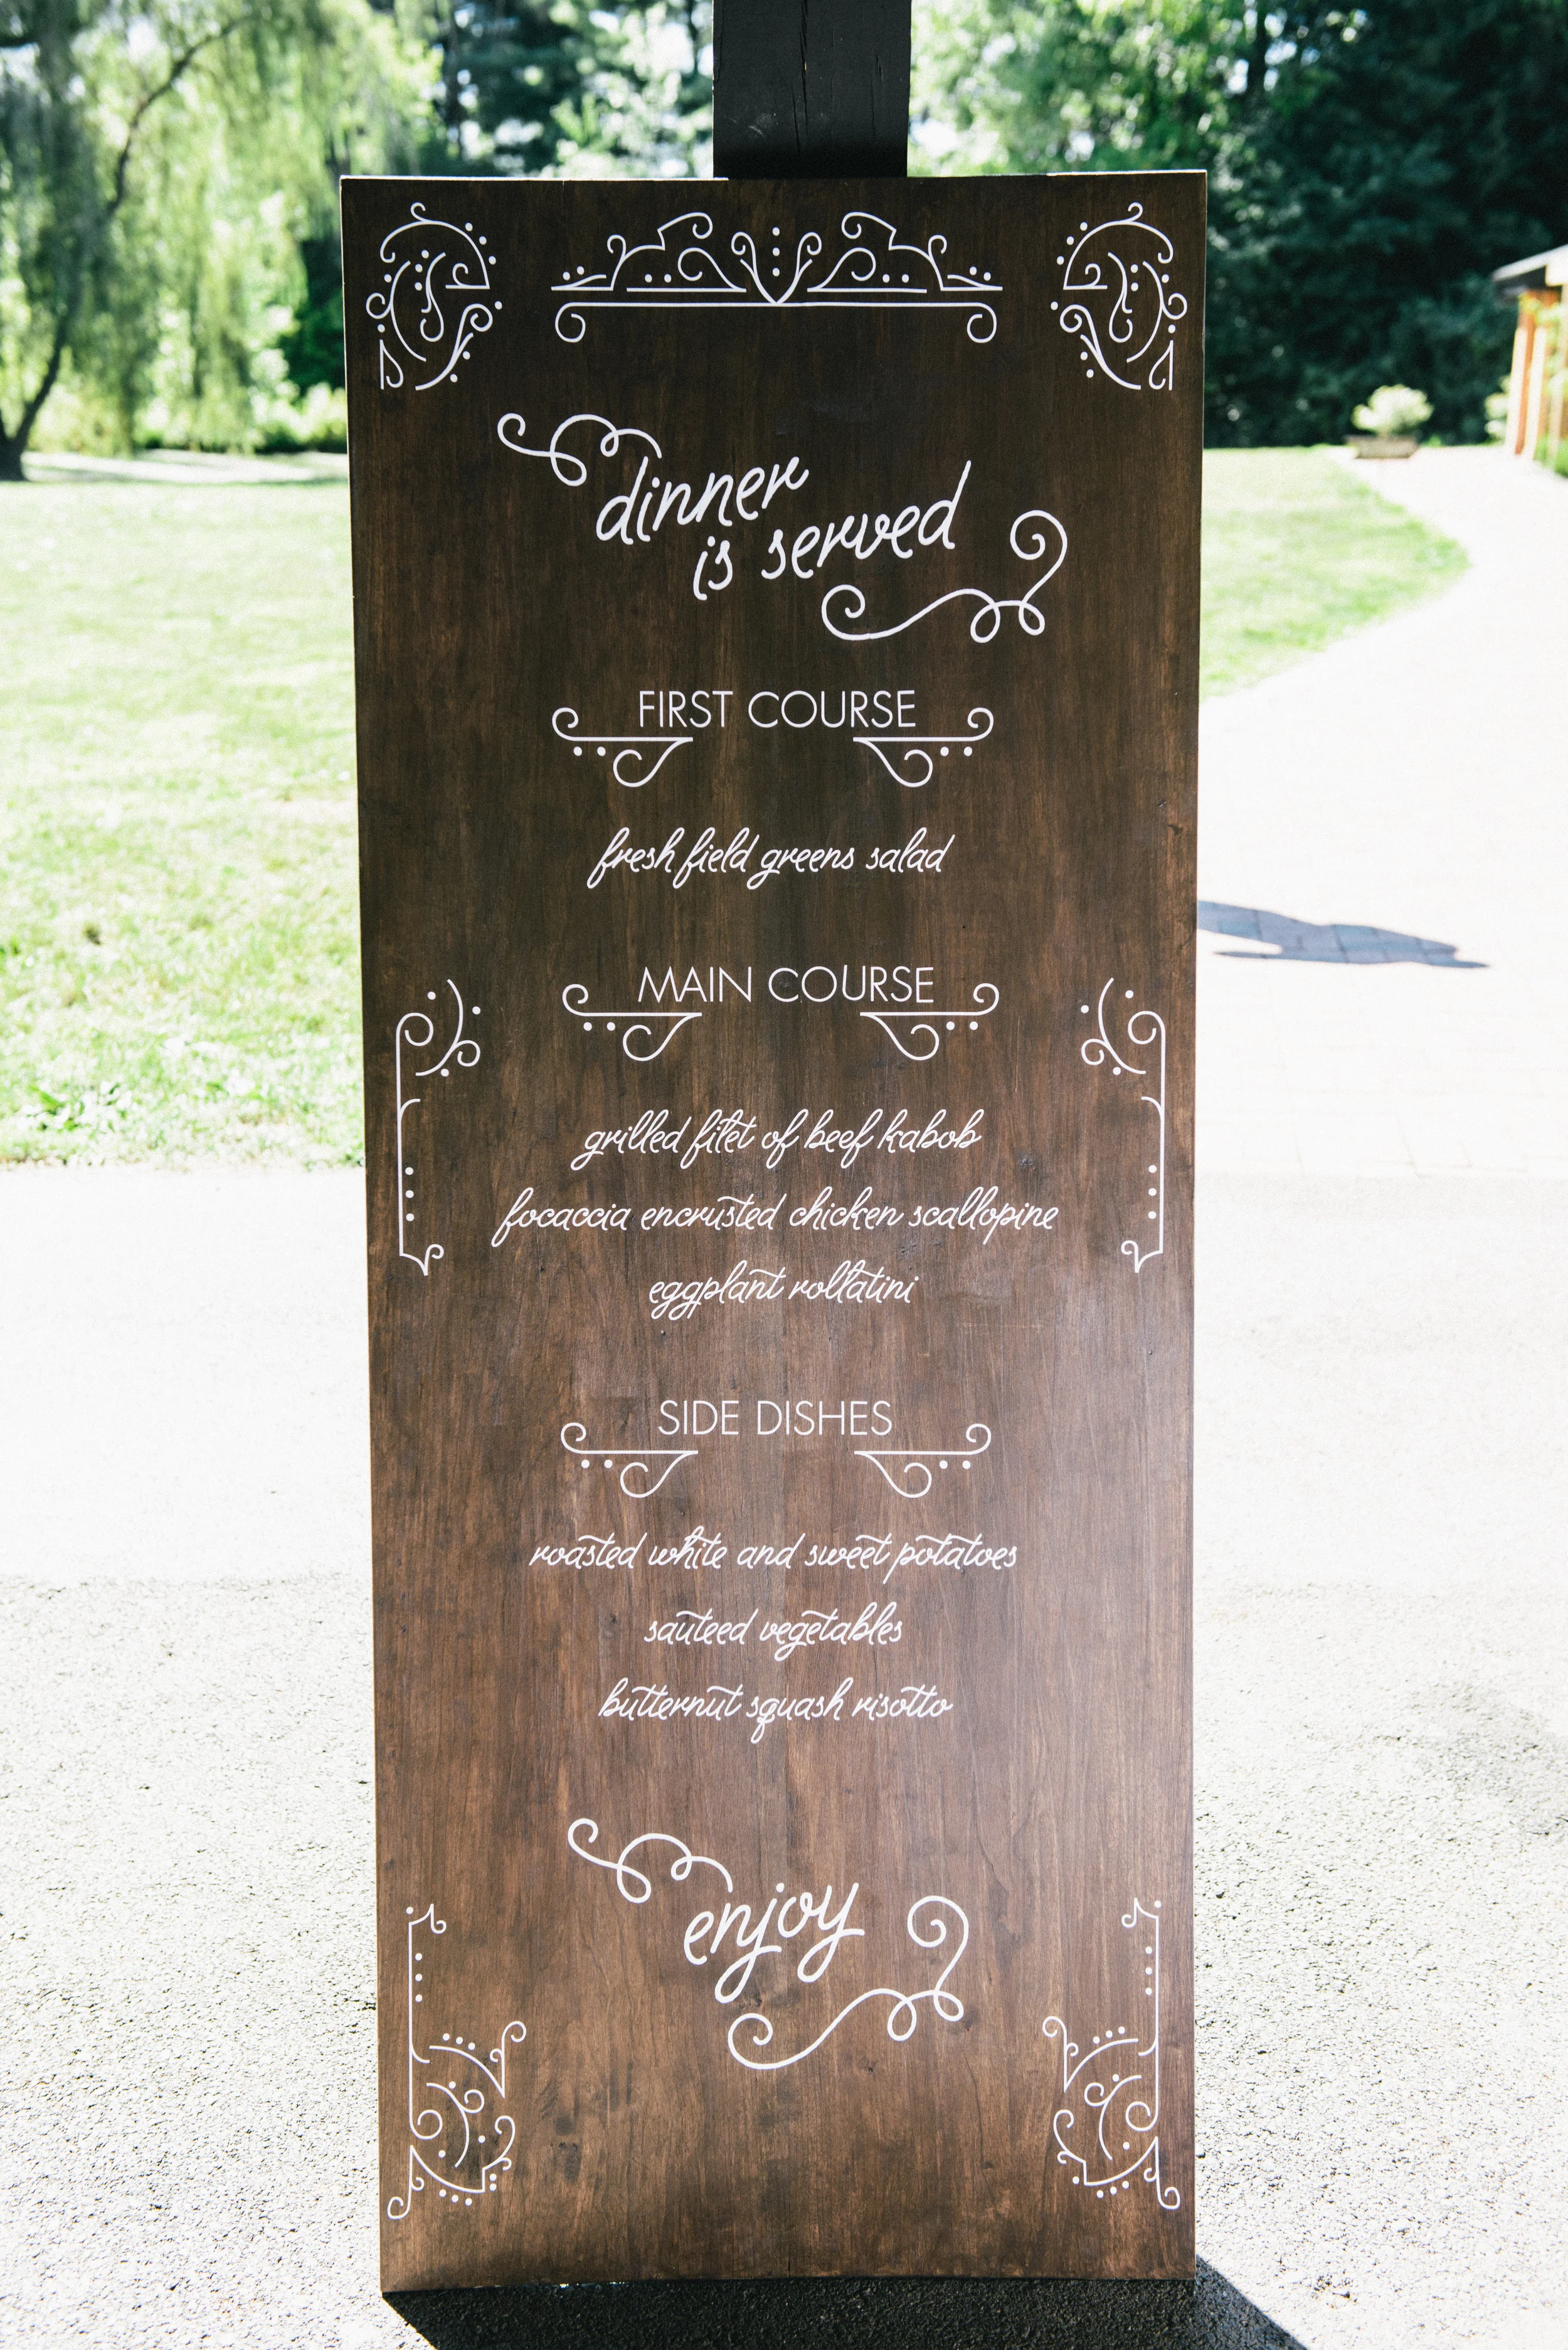 dinner
is served
FIRST COURSE
fresh field greens salad
MAIN COURSE
grilled filet of beef kabob
focaccia encrusted chicken scallopine
eggplant rollatini
SIDE DISHES
roasted white and sweet potatoes
sauteed vegetables
butternut squash risotto
enjoy